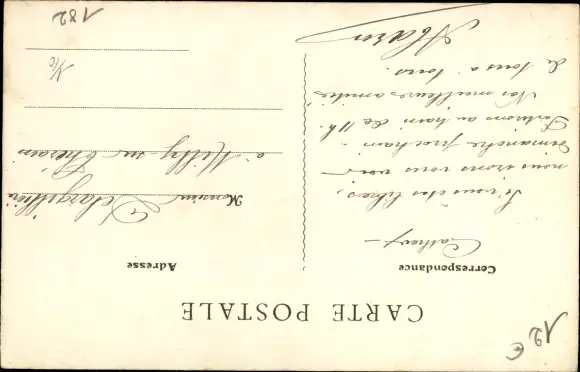 CARTE POSTALE
Correspondance
Si vous êtes libres,
nous irons vous voir
dimanche prochain -
Partirons au train de 11h.
Nos meilleures amitiés
de tous à tous.
Adresse
Monsieur Delargillière
à Milly-sur-Thérain
182
12 €